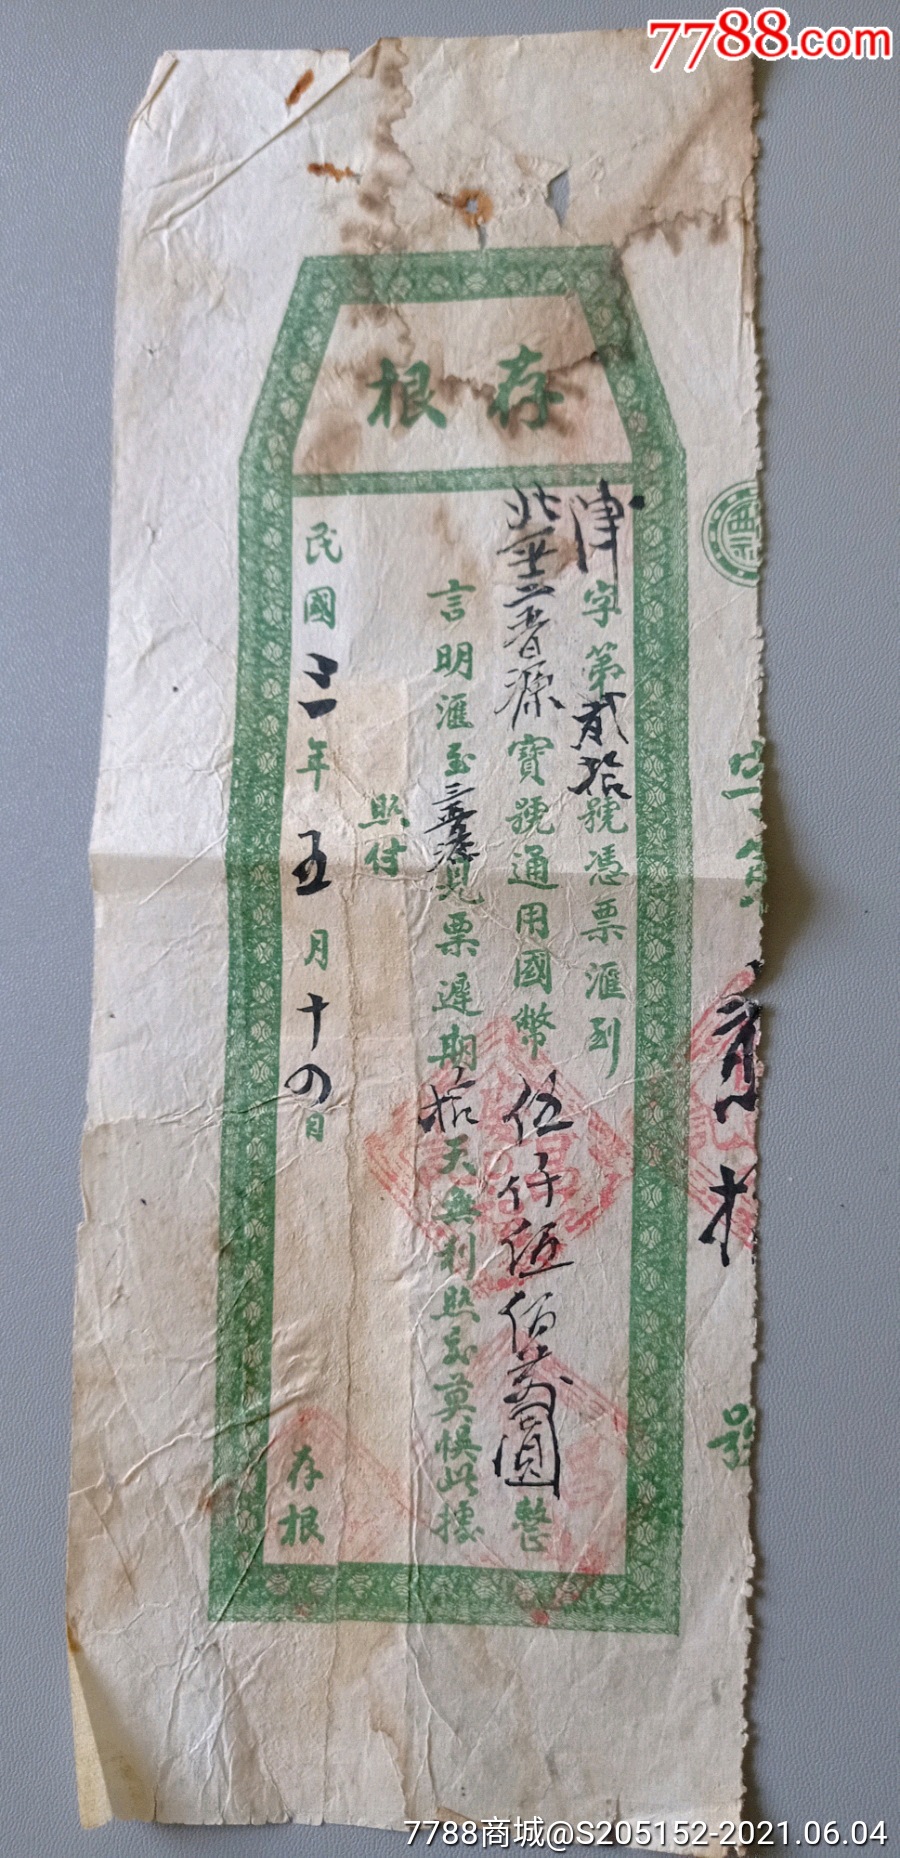 7788.com
存根
津字第貳拾號憑票滙到
源寶號通用國幣伍仟伍佰萬圓整
言明滙至見票遲期拾天無利照交莫悞此據
照付
民國年五月十四日
存根
7788商城@S205152-2021.06.04